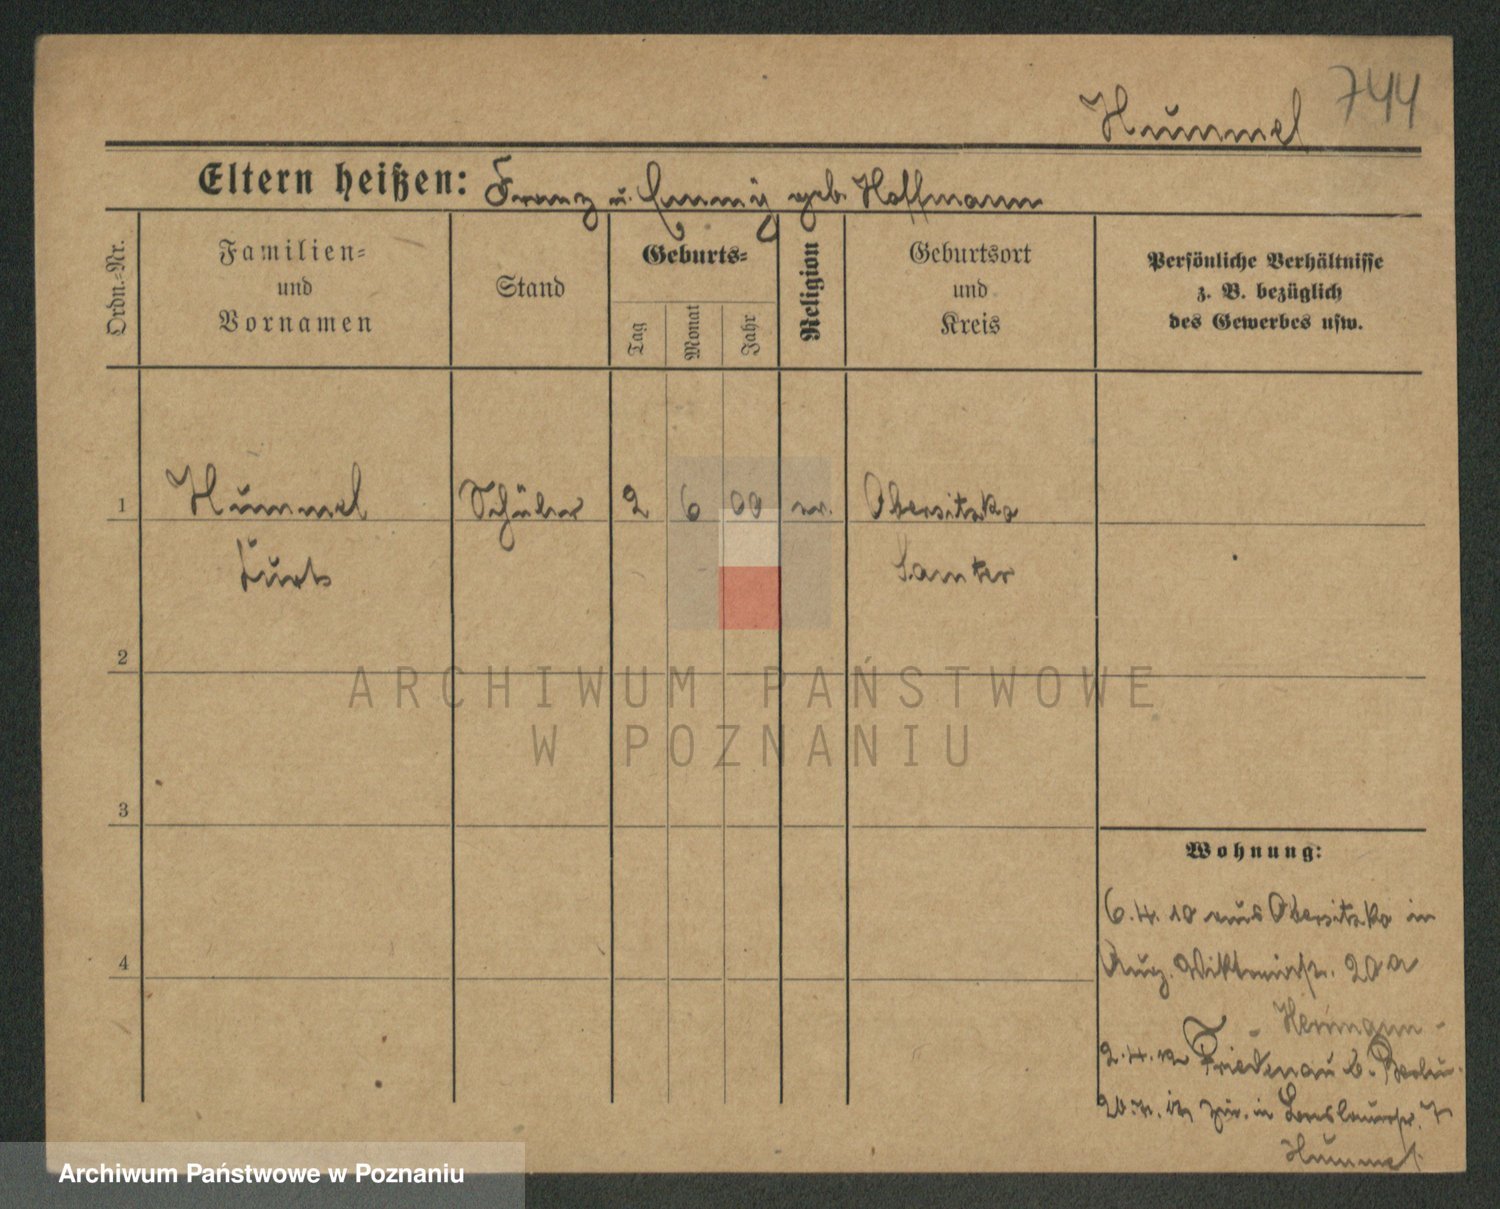 Hummel 744
Eltern heißen: Franz u. Emmy geb. Hoffmann
Ordn.-Nr.
Familien-
und
Vornamen
Stand
Geburts-
Tag
Monat
Jahr
Religion
Geburtsort
und
Kreis
Persönliche Verhältnisse
z. B. bezüglich
des Gewerbes usw.
1 Hummel Schüler 2 6 00 ev. Obersitzko
Kurt Samter
2
3
4
Wohnung:
6.4.10 aus Obersitzko in
Aug. Viktoriastr. 20a
Hermann-
2.4.12 Friedenau b. Berlin
zur. in Breslauerstr. 7
Hummel
ARCHIWUM PAŃSTWOWE
W POZNANIU
Archiwum Państwowe w Poznaniu